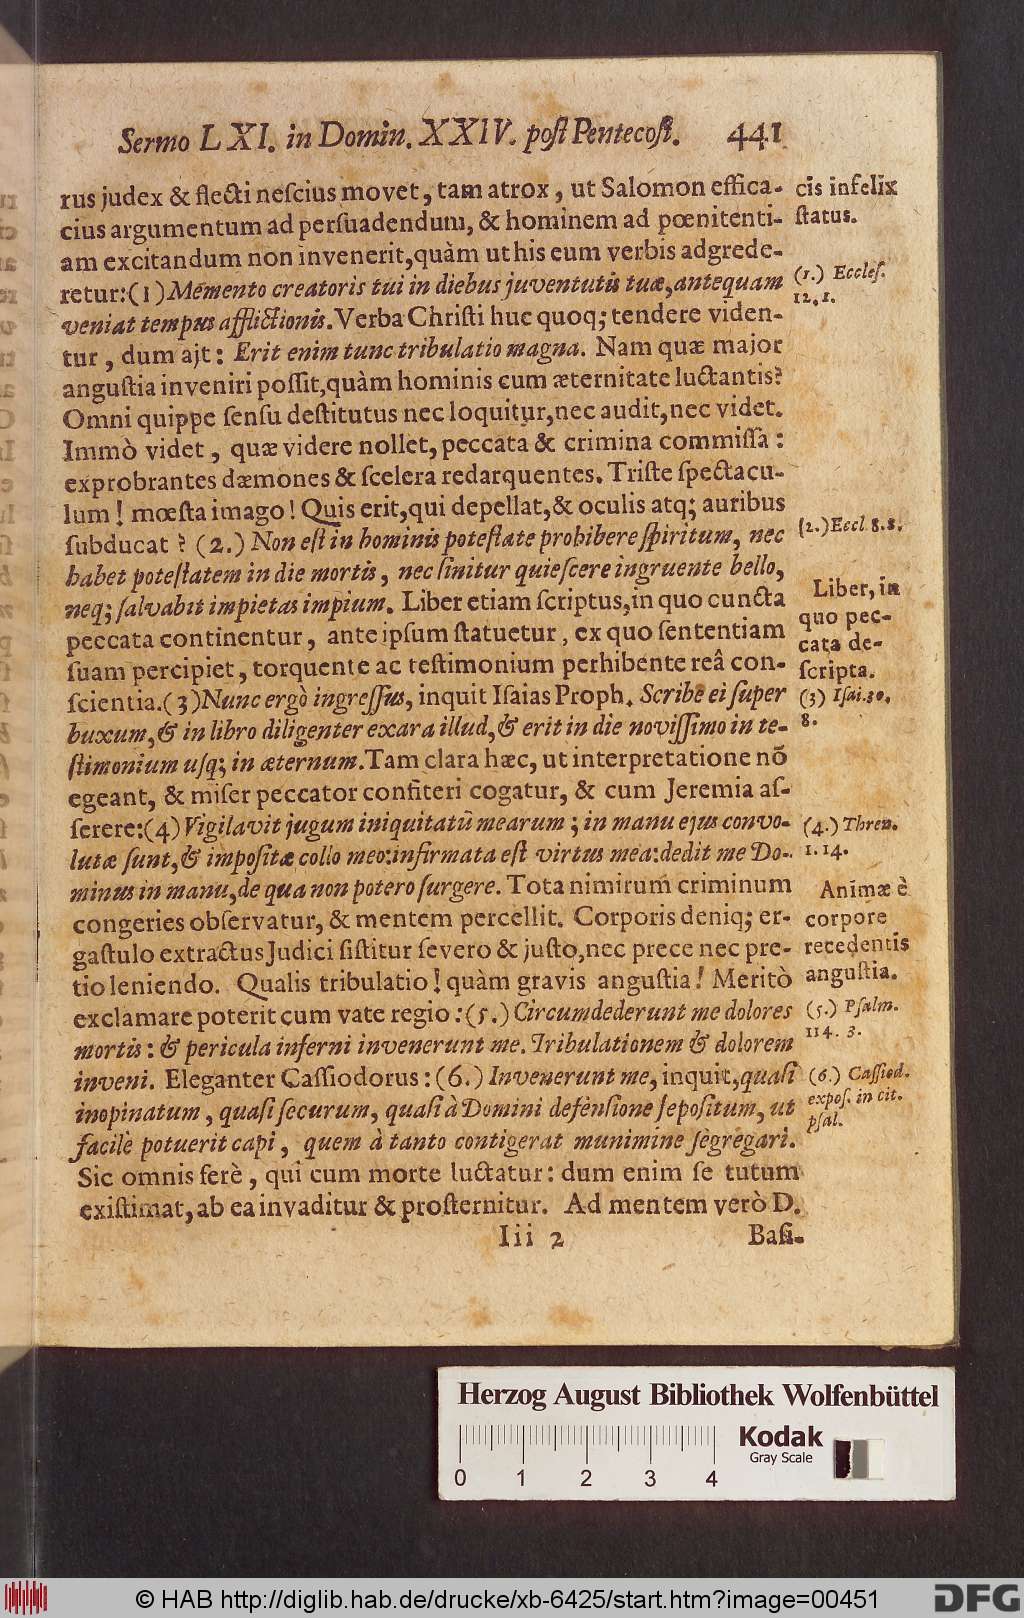 Sermo LXI. in Domin. XXIV. poſt Pentecoſt. 441
rus judex & flecti neſcius movet, tam atrox, ut Salomon effica-
cius argumentum ad perſuadendum, & hominem ad pœnitenti-
am excitandum non invenerit, quàm ut his eum verbis adgrede-
retur: (1) Memento creatoris tui in diebus juventutis tuæ, antequam
veniat tempus afflictionis. Verba Chriſti huc quoq; tendere viden-
tur, dum ajt: Erit enim tunc tribulatio magna. Nam quæ major
anguſtia inveniri poſſit, quàm hominis cum æternitate luctantis?
Omni quippe ſenſu deſtitutus nec loquitur, nec audit, nec videt.
Immò videt, quæ videre nollet, peccata & crimina commiſſa:
exprobrantes dæmones & ſcelera redarquentes. Triſte ſpectacu-
lum! mœſta imago! Quis erit, qui depellat, & oculis atq; auribus
ſubducat? (2.) Non eſt in hominis poteſtate prohibere ſpiritum, nec
habet poteſtatem in die mortis, nec ſinitur quieſcere ingruente bello,
neq; ſalvabit impietas impium. Liber etiam ſcriptus, in quo cuncta
peccata continentur, ante ipſum ſtatuetur, ex quo ſententiam
ſuam percipiet, torquente ac teſtimonium perhibente reâ con-
ſcientia. (3) Nunc ergò ingreſſus, inquit Iſaias Proph. Scribe ei ſuper
buxum, & in libro diligenter exara illud, & erit in die noviſſimo in te-
ſtimonium uſq; in æternum. Tam clara hæc, ut interpretatione nō
egeant, & miſer peccator confiteri cogatur, & cum Jeremia aſ-
ſerere: (4) Vigilavit jugum iniquitatū mearum; in manu ejus convo-
lutæ ſunt, & impoſitæ collo meo: infirmata eſt virtus mea: dedit me Do-
minus in manu, de qua non potero ſurgere. Tota nimirum criminum
congeries obſervatur, & mentem percellit. Corporis deniq; er-
gaſtulo extractus Judici ſiſtitur ſevero & juſto, nec prece nec pre-
tio leniendo. Qualis tribulatio! quàm gravis anguſtia! Meritò
exclamare poterit cum vate regio: (5.) Circumdederunt me dolores
mortis: & pericula inferni invenerunt me. Tribulationem & dolorem
inveni. Eleganter Caſſiodorus: (6.) Invenerunt me, inquit, quaſi
inopinatum, quaſi ſecurum, quaſi à Domini defenſione ſepoſitum, ut
facilè potuerit capi, quem à tanto contigerat munimine ſegregari.
Sic omnis ferè, qui cum morte luctatur: dum enim ſe tutum
exiſtimat, ab ea invaditur & proſternitur. Ad mentem verò D.
Iii 2 Baſi-
cis infelix
ſtatus.
(1.) Eccleſ.
12. 1.
(2.) Eccl 8. 8.
Liber, in
quo pec-
cata de-
ſcripta.
(3) Iſai. 30.
8.
(4.) Thren.
1. 14.
Animæ è
corpore
recedentis
anguſtia.
(5.) Pſalm.
114. 3.
(6.) Caſſiod.
expoſ. in cit.
pſal.
Herzog August Bibliothek Wolfenbüttel
Kodak
Gray Scale
0 1 2 3 4
© HAB http://diglib.hab.de/drucke/xb-6425/start.htm?image=00451
DFG